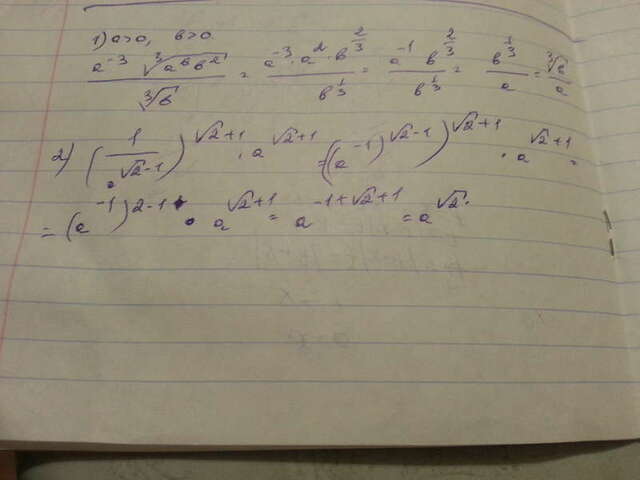 1) a>0, в>0
\frac{a^{-3} \sqrt[3]{a^6 в^2}}{\sqrt[3]{в}} = \frac{a^{-3} \cdot a^2 \cdot в^{\frac{2}{3}}}{в^{\frac{1}{3}}} = \frac{a^{-1} в^{\frac{2}{3}}}{в^{\frac{1}{3}}} = \frac{в^{\frac{1}{3}}}{a} = \frac{\sqrt[3]{в}}{a}
2) (\frac{1}{a^{\sqrt{2}-1}})^{\sqrt{2}+1} \cdot a^{\sqrt{2}+1} = (a^{-1})^{\sqrt{2}-1})^{\sqrt{2}+1} \cdot a^{\sqrt{2}+1} =
= (a^{-1})^{2-1} \cdot a^{\sqrt{2}+1} = a^{-1+\sqrt{2}+1} = a^{\sqrt{2}}.